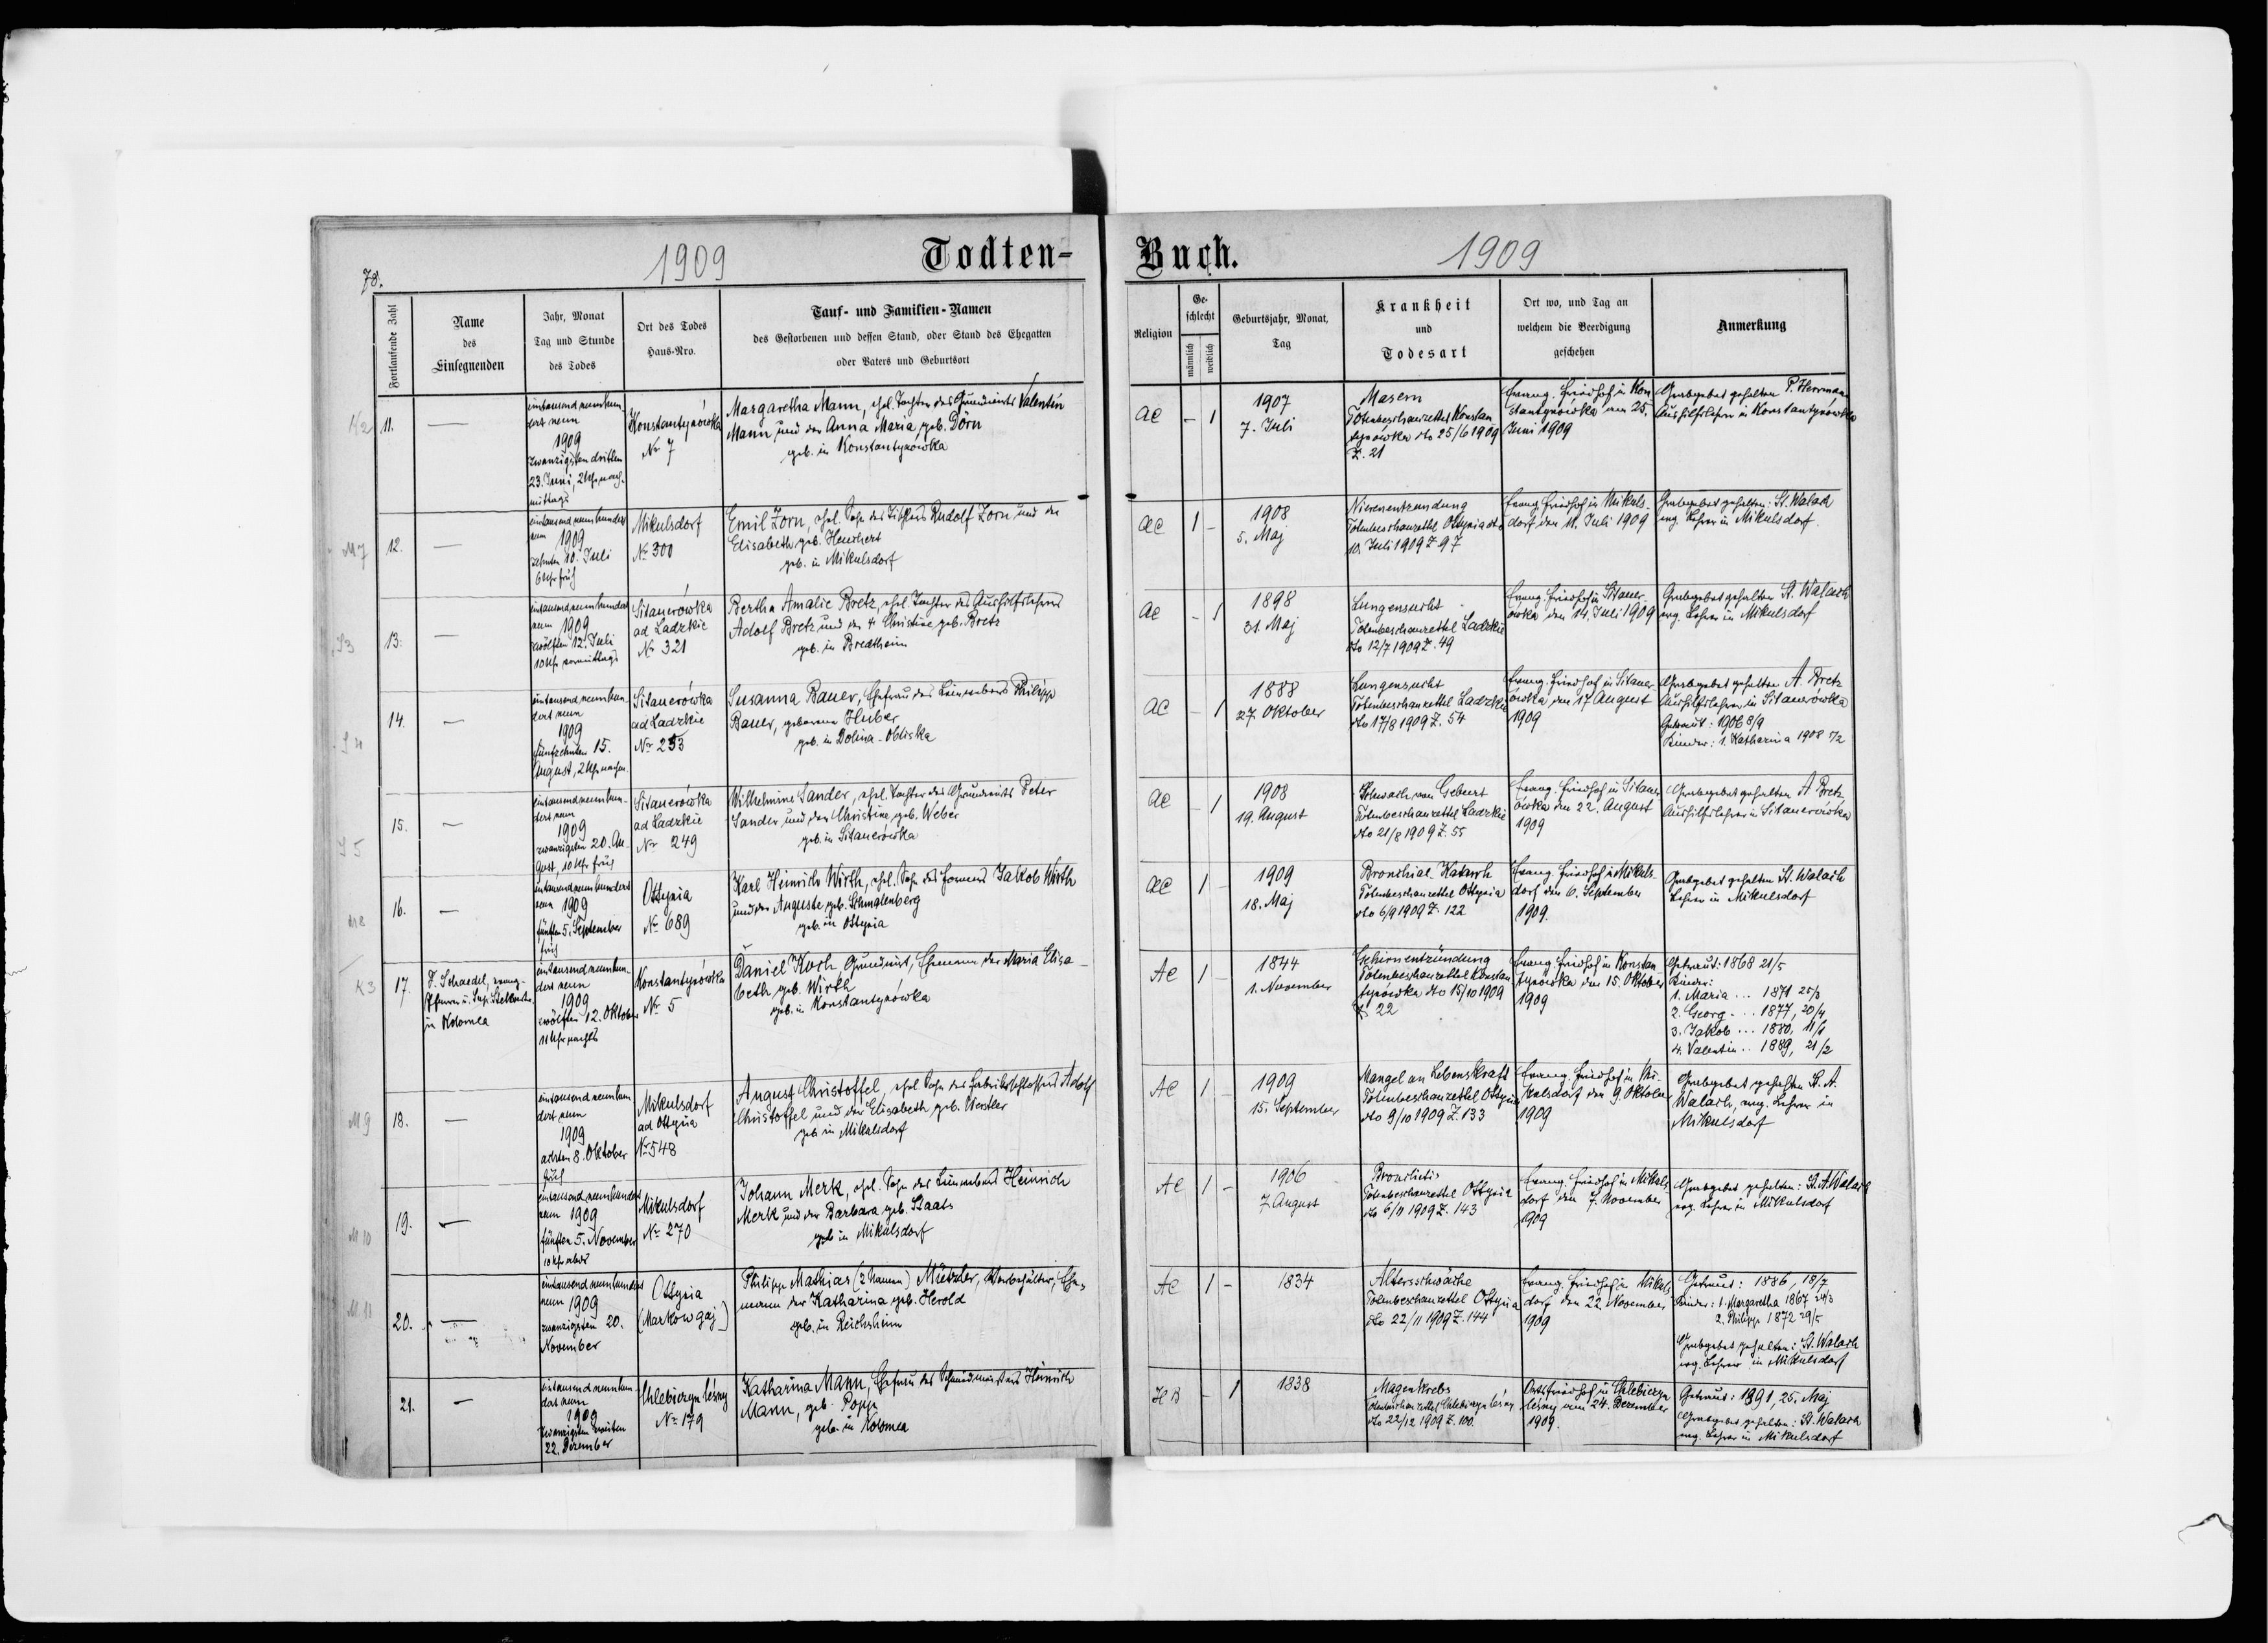 78.
1909
Todten-
Buch.
1909
Fortlaufende Zahl
Name
des
Einsegnenden
Jahr, Monat
Tag und Stunde
des Todes
Ort des Todes
Haus-Nro.
Tauf- und Familien-Namen
des Gestorbenen und dessen Stand, oder Stand des Ehegatten
oder Vaters und Geburtsort
Religion
Ge-
schlecht
männlich
weiblich
Geburtsjahr, Monat,
Tag
Krankheit
und
Todesart
Ort wo, und Tag an
welchem die Beerdigung
geschehen
Anmerkung
K2
11.
—
eintausend neunhun-
dert neun
1909
zwanzigsten dritten
23. Juni, 2 Uhr nach-
mittags
Konstantynówka
No 7
Margaretha Mann, ehel. Tochter des Grundwirts Valentin
Mann und der Anna Maria geb. Dörn
geb. in Konstantynówka
AC
- 1
1907
7. Juli
Masern
Totenbeschauzettel Konstan
tynówka dto 25/6 1909
Z. 21
Evang. Friedhof in Kon
stantynówka am 25.
Juni 1909
Grabgebet gehalten P. Herrmann
Aushilfslehrer in Konstantynówka
M7
12.
—
eintausend neunhundert
neun 1909
zehnten 10. Juli
6 Uhr früh
Mikulsdorf
No 300
Emil Zorn, ehel. Sohn des Tischlers Rudolf Zorn und der
Elisabeth geb.
geb. in Mikulsdorf
AC
1 -
1908
5. Maj
Nierenentzundung
Totenbeschauzettel Ottynia dto
10. Juli 1909 Z 97
Evang. Friedhof in Mikuls-
dorf den 11. Juli 1909
Grabgebet gehalten: St. Walach
evg. Lehrer in Mikulsdorf.
13.
—
eintausend neunhundert
neun 1909
zwölften 12. Juli
10 Uhr vormittags
Sitauerówka
ad Ladzkie
No 321
Bertha Amalie Bretz, ehel. Tochter des Aushilfslehrers
Adolf Bretz und der Christine geb. Bretz
geb. in Bredtheim
AC
- 1
1898
31. Maj
Lungensucht
Totenbeschauzettel Ladzkie
dto 12/7 1909 Z. 49
Evang. Friedhof in Sitauer-
ówka den 14. Juli 1909
Grabgebet gehalten St. Walach
evg. Lehrer in Mikulsdorf
14.
—
eintausend neunhun
dert neun
1909
fünfzehnten 15.
August, 2 Uhr nachm
Sitauerówka
ad Ladzkie
No 253
Susanna Bauer, Ehefrau des Leinwebers Philipp
Bauer, geborene Huber
geb. in Dolina-Obliska
AC
- 1
1888
27. Oktober
Lungensucht
Totenbeschauzettel Ladzkie
dto 17/8 1909 Z. 54
Evang. Friedhof in Sitauer-
ówka den 17 August
1909
Grabgebet gehalten A. Bretz
Aushilfslehrer in Sitauerówka
Getraut: 1906 8/9
Kinder: 1. Katharina 1908
15.
—
eintausend neunhun-
dert neun
1909
zwanzigsten 20. Au-
gust, 10 Uhr früh
Sitauerówka
ad Ladzkie
No 249
Wilhelmine Sander, ehel. Tochter des Grundwirts Peter
Sander und der Christine geb. Weber
geb. in Sitauerówka
AC
- 1
1908
19. August
Schwach von Geburt
Totenbeschauzettel Ladzkie
dto 21/8 1909 Z. 55
Evang. Friedhof in Sitauer
ówka den 22. August
1909
Grabgebet gehalten A Bretz
Aushilfslehrer in Sitauerówka
M8
16.
—
eintausend neunhundert
neun 1909
fünften 5. September
früh
Ottynia
No 689
Karl Heinrich Wirth, ehel. Sohn des Formers Jakob Wirth
und der Auguste geb. Schmalenberg
geb. in Ottynia
AC
1 -
1909
18. Maj
Bronchial-Katarrh
Totenbeschauzettel Ottynia
dto 6/9 1909 Z. 122
Evang. Friedhof in Mikuls-
dorf den 6. September
1909.
Grabgebet gehalten St. Walach
Lehrer in Mikulsdorf
K3
17.
in Kolomea
eintausend neunhun-
dert neun
1909
zwölften 12. Oktober
11 Uhr nachts
Konstantynówka
No 5
Daniel Koch Grundwirt, Ehemann der Maria Elisa-
beth geb. Wirth
geb. in Konstantynówka
AC
1 -
1844
1. November
Gehirnentzündung
Totenbeschauzettel Konstan
tynówka dto 15/10 1909
Z. 22
Evang. Friedhof in Konstan
tynówka den 15. Oktober
1909
Getraut: 1868 21/5
Kinder:
1. Maria ... 1871 25/3
2. Georg ... 1877, 20/4
3. Jakob ... 1880, 11/1
4. Valentin .. 1889, 21/2
M9
18.
—
eintausend neunhun
dert neun
1909
achten 8. Oktober
früh
Mikulsdorf
ad Ottynia
No 548
August Christoffel, ehel. Sohn des Fabriksschlossers Adolf
Christoffel und der Elisabeth geb.
geb. in Mikulsdorf
AC
1 -
1909
15. September
Mangel an Lebenskraft
Totenbeschauzettel Ottynia
dto 9/10 1909 Z. 133
Evang. Friedhof in Mi-
kulsdorf den 9. Oktober
1909
Grabgebet gehalten St. A.
Walach, evg. Lehrer in
Mikulsdorf
M10
19.
—
eintausend neunhundert
neun 1909
fünften 5. November
10 Uhr
Mikulsdorf
No 270
Johann Merk, ehel. Sohn des Leinwebers Heinrich
Merk und der Barbara geb. Staats
geb. in Mikulsdorf
AC
1 -
1906
7. August
Bronchitis
Totenbeschauzettel Ottynia
dto 6/11 1909 Z. 143
Evang. Friedhof in Mikuls-
dorf den 7. November
1909
Grabgebet gehalten: St. A. Walach
evg. Lehrer in Mikulsdorf
M11
20.
—
eintausend neunhundert
neun 1909
zwanzigsten 20.
November
Ottynia
(Markow gaj)
Philipp Mathias (2 Namen) Ehe-
mann der Katharina geb. Herold
geb. in Reichsheim
AC
1 -
1834
Altersschwäche
Totenbeschauzettel Ottynia
dto 22/11 1909 Z. 144
Evang. Friedhof in Mikuls
dorf den 22. November
1909
Getraut: 1886, 18/7
Kinder: 1. Margaretha 1867
2. Philipp 1872 29/5
Grabgebet gehalten: St. Walach
evg. Lehrer in Mikulsdorf
21.
—
eintausend neunhun
dert neun
1909
zwanzigsten zweiten
22. Dezember
Chlebiczyn lésny
No 179
Katharina Mann, Ehefrau des Schmiedmeisters Heinrich
Mann, geb. Popp
geb. in Kolomea
HB
- 1
1838
Magenkrebs
Totenbeschauzettel Chlebiczyn lésny
dto 22/12 1909 Z. 100.
Ortsfriedhof in Chlebiczyn
lésny am 24. Dezember
1909.
Getraut: 1891, 25. Maj
Grabgebet gehalten: St. Walach
evg. Lehrer in Mikulsdorf